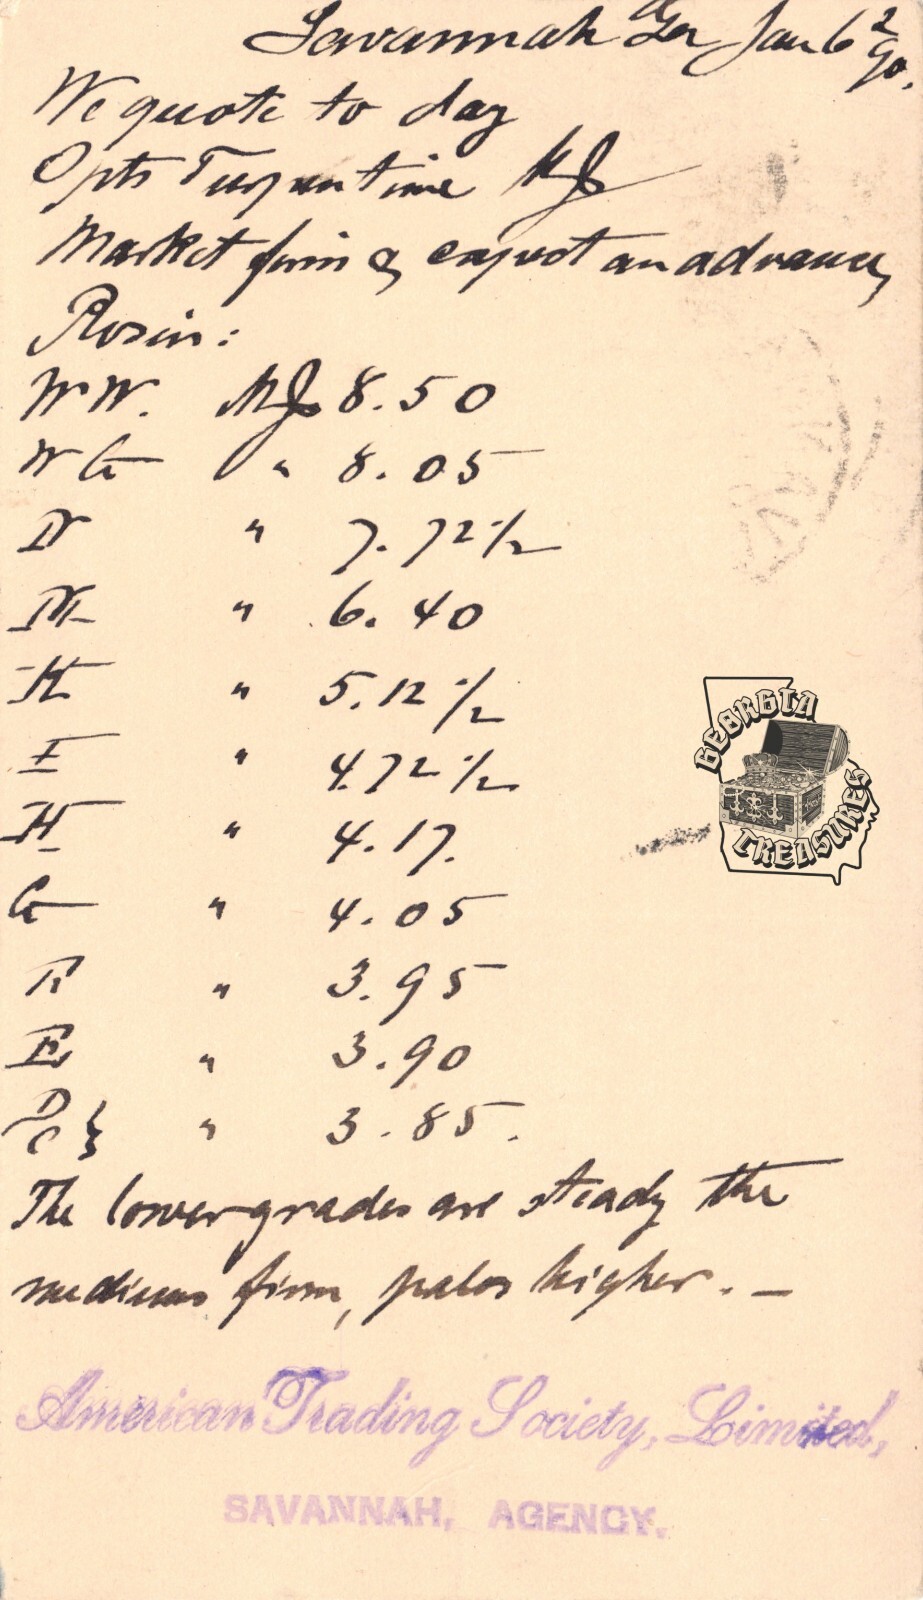 Savannah Ga Jan 6 90.
We quote to day
Opts Turpentine MJ
Market firm & expect an advance,
Rosin:
WW. MJ 8.50
WG " 8.05
N " 7.72 1/2
M " 6.40
K " 5.12 1/2
I " 4.72 1/2
H " 4.17.
G " 4.05
F " 3.95
E " 3.90
D
C } " 3.85.
The lower grades are steady the
mediums firm, pales higher. –
American Trading Society, Limited,
SAVANNAH, AGENCY.
GEORGIA
TREASURES